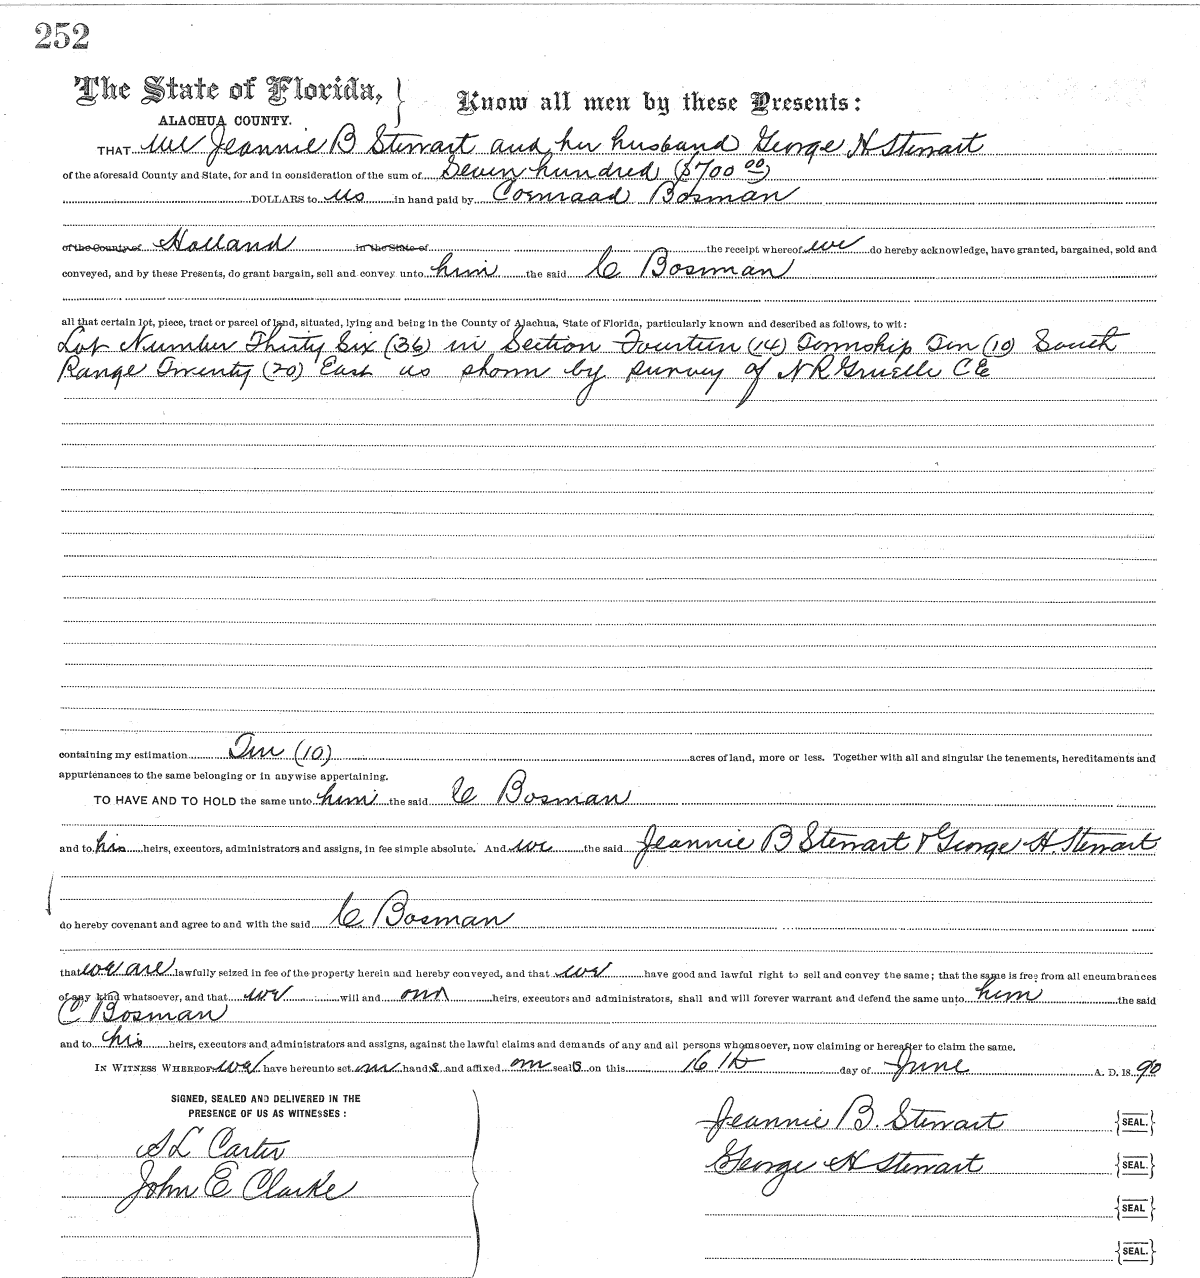 252
The State of Florida, Know all men by these Presents:
ALACHUA COUNTY.
THAT we Jeannie B Stewart and her husband George H Stewart
of the aforesaid County and State, for and in consideration of the sum of Seven hundred ($700 00)
DOLLARS to us in hand paid by Coenraad Bosman
of the County of Holland in the State of the receipt whereof we do hereby acknowledge, have granted, bargained, sold and
conveyed, and by these Presents, do grant bargain, sell and convey unto him the said C Bosman
all that certain lot, piece, tract or parcel of land, situated, lying and being in the County of Alachua, State of Florida, particularly known and described as follows, to wit:
Lot Number Thirty Six (36) in Section Fourteen (14) Township Ten (10) South
Range Twenty (20) East as shown by survey of N R Gruelle C E
containing my estimation Ten (10) acres of land, more or less. Together with all and singular the tenements, hereditaments and
appurtenances to the same belonging or in anywise appertaining.
TO HAVE AND TO HOLD the same unto him the said C Bosman
and to his heirs, executors, administrators and assigns, in fee simple absolute. And we the said Jeannie B Stewart & George H. Stewart
do hereby covenant and agree to and with the said C Bosman
that we are lawfully seized in fee of the property herein and hereby conveyed, and that we have good and lawful right to sell and convey the same; that the same is free from all encumbrances
of any kind whatsoever, and that we will and our heirs, executors and administrators, shall and will forever warrant and defend the same unto him the said
C Bosman
and to his heirs, executors and administrators and assigns, against the lawful claims and demands of any and all persons whomsoever, now claiming or hereafter to claim the same.
IN WITNESS WHEREOF we have hereunto set our hands and affixed our seals on this 16th day of June A. D. 18 90
SIGNED, SEALED AND DELIVERED IN THE
PRESENCE OF US AS WITNESSES:
Jeannie B. Stewart {SEAL.}
S L Carter
George H Stewart {SEAL.}
John E Clarke
{SEAL}
{SEAL.}